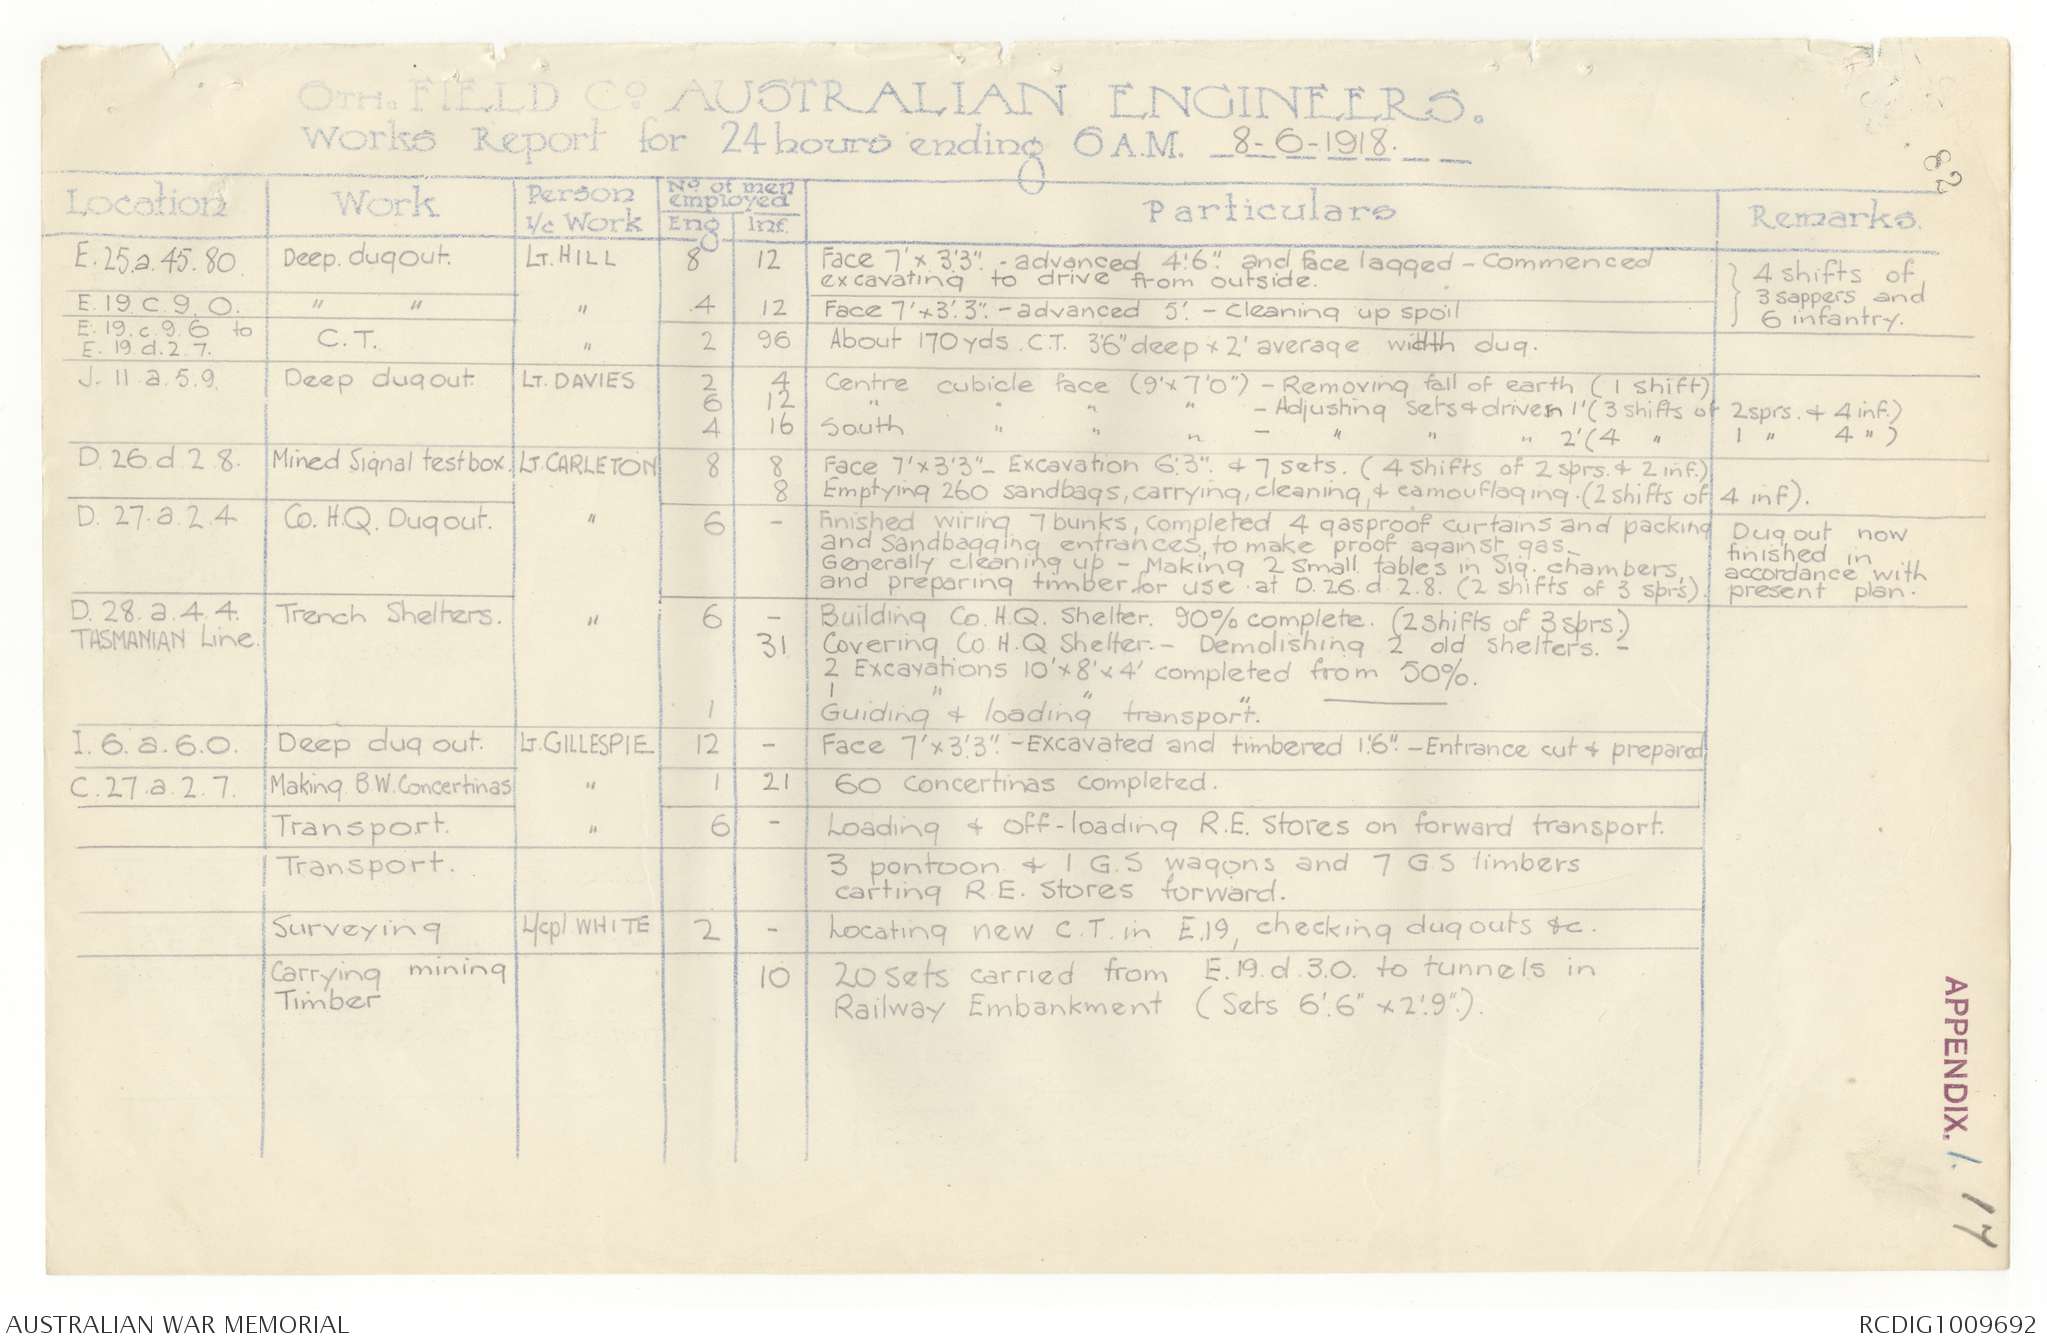 6TH. FIELD Co AUSTRALIAN ENGINEERS.
Works Report for 24 hours ending 6 A.M. 8-6-1918.
82
Location Work Person i/c Work No. of men employed Eng Inf. Particulars Remarks.
E. 25.a. 45. 80. Deep dugout. Lt. HILL 8 12 Face 7' x 3'.3". - advanced 4'.6". and face lagged - Commenced
excavating to drive from outside.
} 4 shifts of
3 sappers and
6 infantry.
E. 19. c. 9. 0. " " " 4 12 Face 7' x 3'. 3". - advanced 5'. - Cleaning up spoil
E. 19. c. 9. 6 to
E. 19. d. 2. 7. C.T. " 2 96 About 170 yds. C.T. 3'6" deep x 2' average width dug.
J. 11. a. 5. 9. Deep dugout. Lt. DAVIES 2 4 Centre cubicle face (9' x 7'0") - Removing fall of earth (1 shift)
6 12 " " " " - Adjusting sets & driven 1' (3 shifts of 2 sprs. & 4 inf.)
4 16 South " " " - " " " 2' (4 " 1 " 4 ")
D. 26. d. 2. 8. Mined Signal testbox. Lt. CARLETON 8 8 Face 7' x 3'3" - Excavation 6'.3". & 7 sets. (4 shifts of 2 sprs. & 2 inf.)
8 Emptying 260 sandbags, carrying, cleaning, & camouflaging. (2 shifts of 4 inf).
D. 27. a. 2. 4 Co. H.Q. Dugout. " 6 - Finished wiring 7 bunks, completed 4 gasproof curtains and packing
and sandbagging entrances, to make proof against gas.
Generally cleaning up - Making 2 small tables in Sig. chambers,
and preparing timber for use at D. 26. d. 2. 8. (2 shifts of 3 sprs).
Dugout now
finished in
accordance with
present plan.
D. 28. a. 4. 4.
TASMANIAN Line. Trench Shelters. " 6 - Building Co. H.Q. Shelter. 90% complete. (2 shifts of 3 sprs.)
31 Covering Co. H.Q Shelter. - Demolishing 2 old shelters. -
2 Excavations 10' x 8' x 4' completed from 50%.
1 " " " ———
1 Guiding & loading transport.
I. 6. a. 6. 0. Deep dug out. Lt. GILLESPIE 12 - Face 7' x 3'.3". - Excavated and timbered 1'.6". - Entrance cut & prepared
C. 27. a. 2. 7. Making B.W. Concertinas " 1 21 60 Concertinas completed.
Transport. " 6 - Loading & off-loading R.E. Stores on forward transport.
Transport. 3 pontoon & 1 G.S wagons and 7 G S limbers
carting R.E. Stores forward.
Surveying L/cpl WHITE 2 - Locating new C.T. in E.19, checking dugouts &c.
Carrying mining
Timber 10 20 Sets carried from E. 19. d. 3.0. to tunnels in
Railway Embankment (Sets 6'.6" x 2'.9").
APPENDIX. 1.
17
AUSTRALIAN WAR MEMORIAL
RCDIG1009692